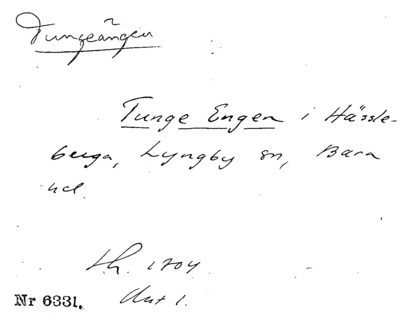 Tungeängen
Tunge Engen i Hässle-
berga, Lyngby sn, Bara
hd.
Lh. 1704
Ant 1.
Nr 6331.